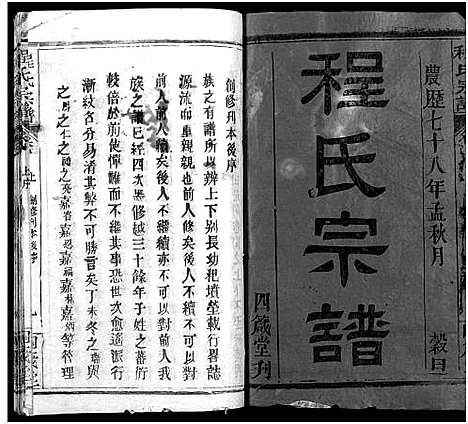 程氏宗譜
農歷七十八年孟秋月
穀旦
程氏宗譜
四箴堂刊
創修刊本後序
族之有譜所以辨上下别長幼祀墳塋載行畧誌
源流而重親親也前人修矣後人不續不可以對
前人前人續矣後人不繼續亦不可以對前人我
族之譜已經四次纂修越三十餘年子姓之蕃衍
較倍於前使憚難而弗舉其事恐世次愈遙派行
漸紋名分易淆其弊不可勝言矣丁未冬之璵與
之周之仁之炳之英嘉睿嘉炳嘉福嘉模等倚理
程氏宗譜
創修刊本後序